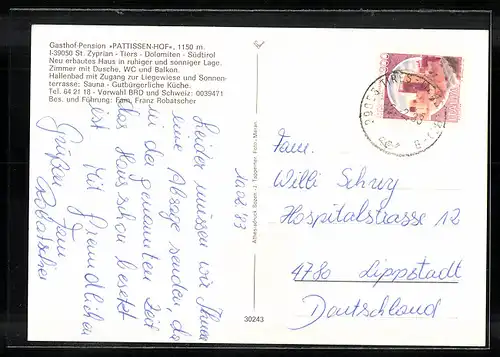 Gasthof-Pension «PATTISSEN-HOF», 1150 m.
I-39050 St. Zyprian - Tiers - Dolomiten - Südtirol
Neu erbautes Haus in ruhiger und sonniger Lage.
Zimmer mit Dusche, WC und Balkon.
Hallenbad mit Zugang zur Liegewiese und Sonnen-
terrasse: Sauna - Gutbürgerliche Küche.
Tel. 64 21 18 - Vorwahl BRD und Schweiz: 0039471
Bes. und Führung: Fam. Franz Robatscher
Leider müssen wir Ihnen
eine Absage senden, da
in der genannten Zeit
das Haus schon besetzt
ist. Mit freundlichen
Grüßen Fam
Robatscher
30243
Fam.
Willi Schuy
Hospitalstrasse 12
4780 Lippstadt
Deutschland